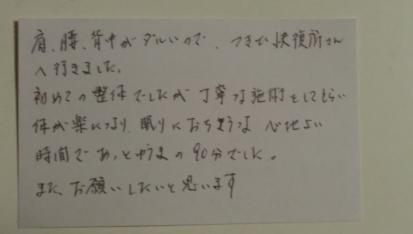 肩、腰、背中がダルいので、つきだて快復所さん
へ行きました。
初めての整体でしたが丁寧な施術をしてもらい
体が楽になり、眠りにおちそうな心地よい
時間であっとゆうまの90分でした。
また、お願いしたいと思います